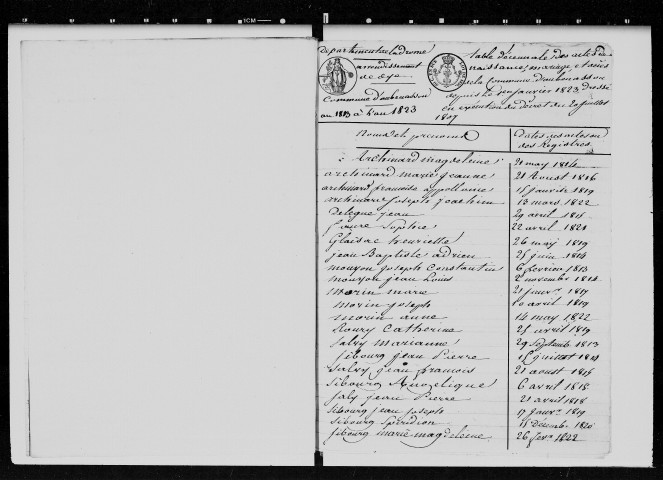 departement de la drome
arrondissement
de die
Commune d'aubenasson
an 1813 à l'an 1823
table décennale des actes de
naissances, mariage et décès
de la Commune d'aubenasson
depuis le 1er janvier 1823 dressé
en exécution du décret du 20 juillet
1807
Noms et prenoms
Dates des actes
des Registres
Archinard magdeleine 20 may 1814
archinard marie jeanne 21 Aoust 1816
archinard francoise appollonie 15 janvier 1819
archinard joseph joachim 13 mars 1822
jean 29 avril
faure Sophie 22 avril 1821
henriette 26 may 1819
jean Baptiste adrien 25 juin 1814
mouyon joseph Constantin 6 fevrier 1813
jean Louis 2 novembre 1814
morin marie 21 janvr 1817
morin joseph 10 avril 1819
morin anne 14 may 1822
Roury Catherine 25 avril 1819
marianne 29 Septemb 1813
sibourg jean Pierre
jean francois 21 aoust 1816
sibourg Angelique 6 avril 1818
jean Pierre 21 avril 1818
sibourg jean joseph 17 janvr 1819
sibourg Spiridion 15 Décembre 1820
sibourg marie magdeleine 26 fevr 1822